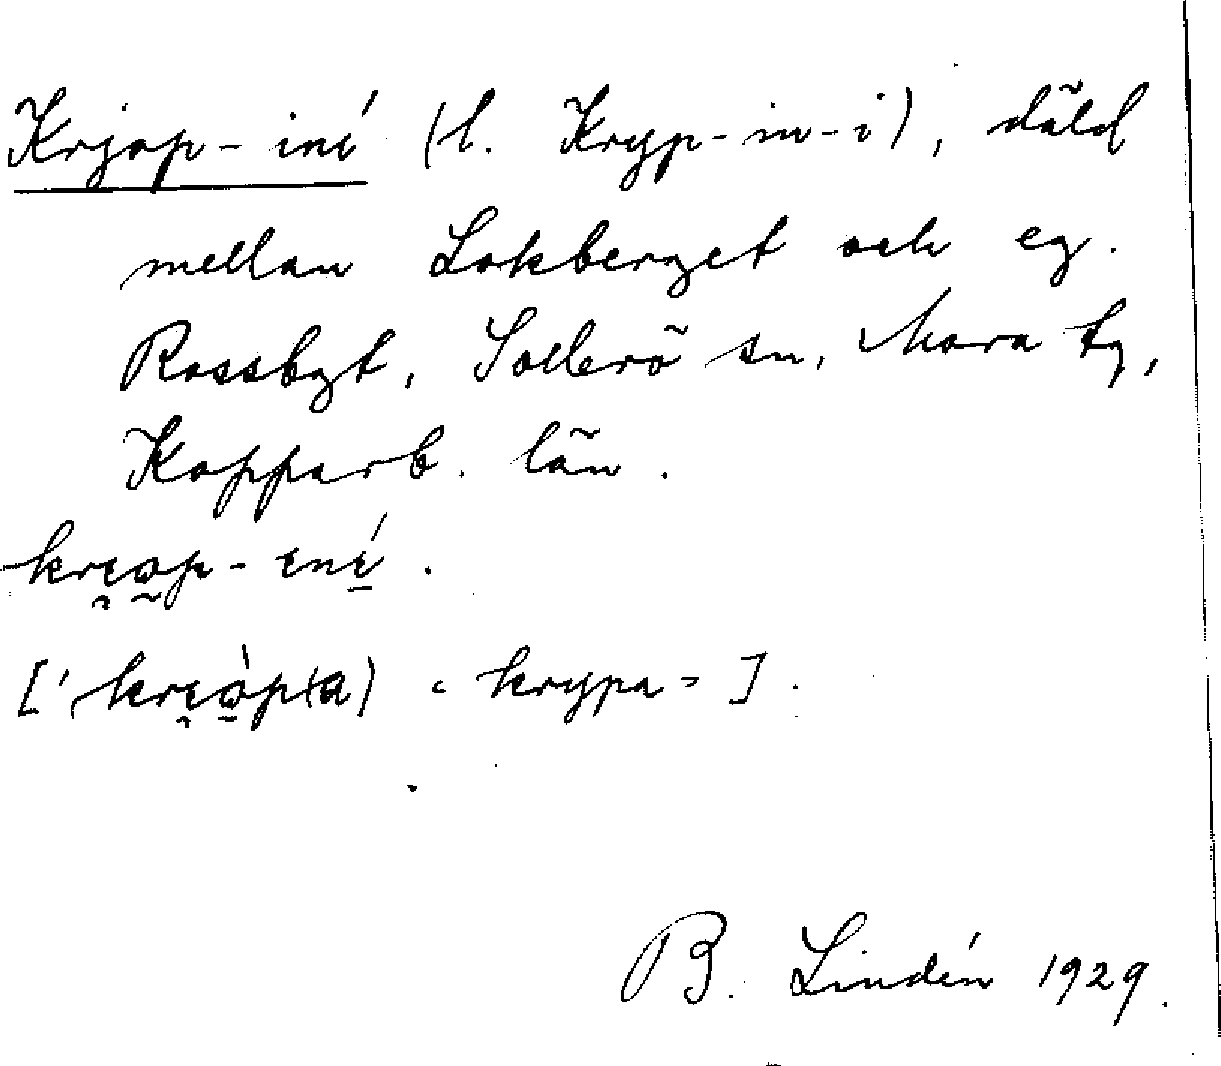 Krjop-iné (l. Kryp-in-i), däld
mellan Lokberget och eg.
Rossbgt, Sollerö sn, Mora tg,
Kopparb. län.
krɪ̯o̰p-ɪní̱.
[' krɪ̯ò̱p(a) "krypa" ].
B. Lindén 1929.